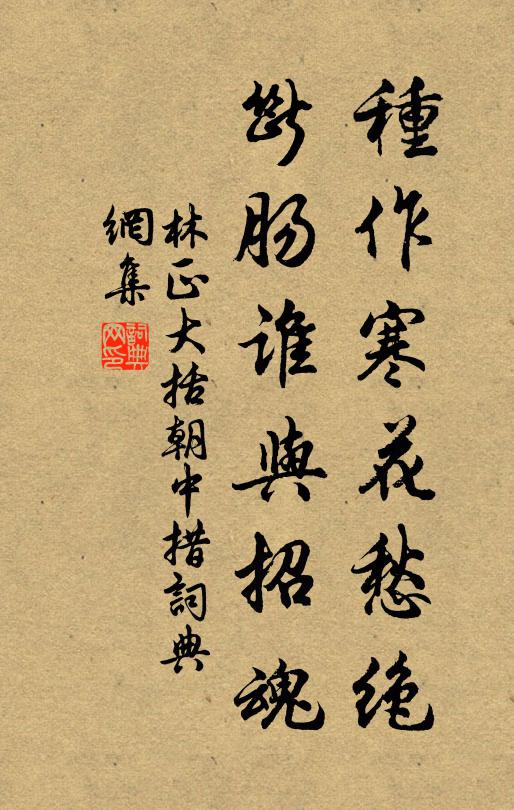 種作寒花愁絶
斷肠誰與招魂
林正大括朝中措詞典
網集
詞典
网印